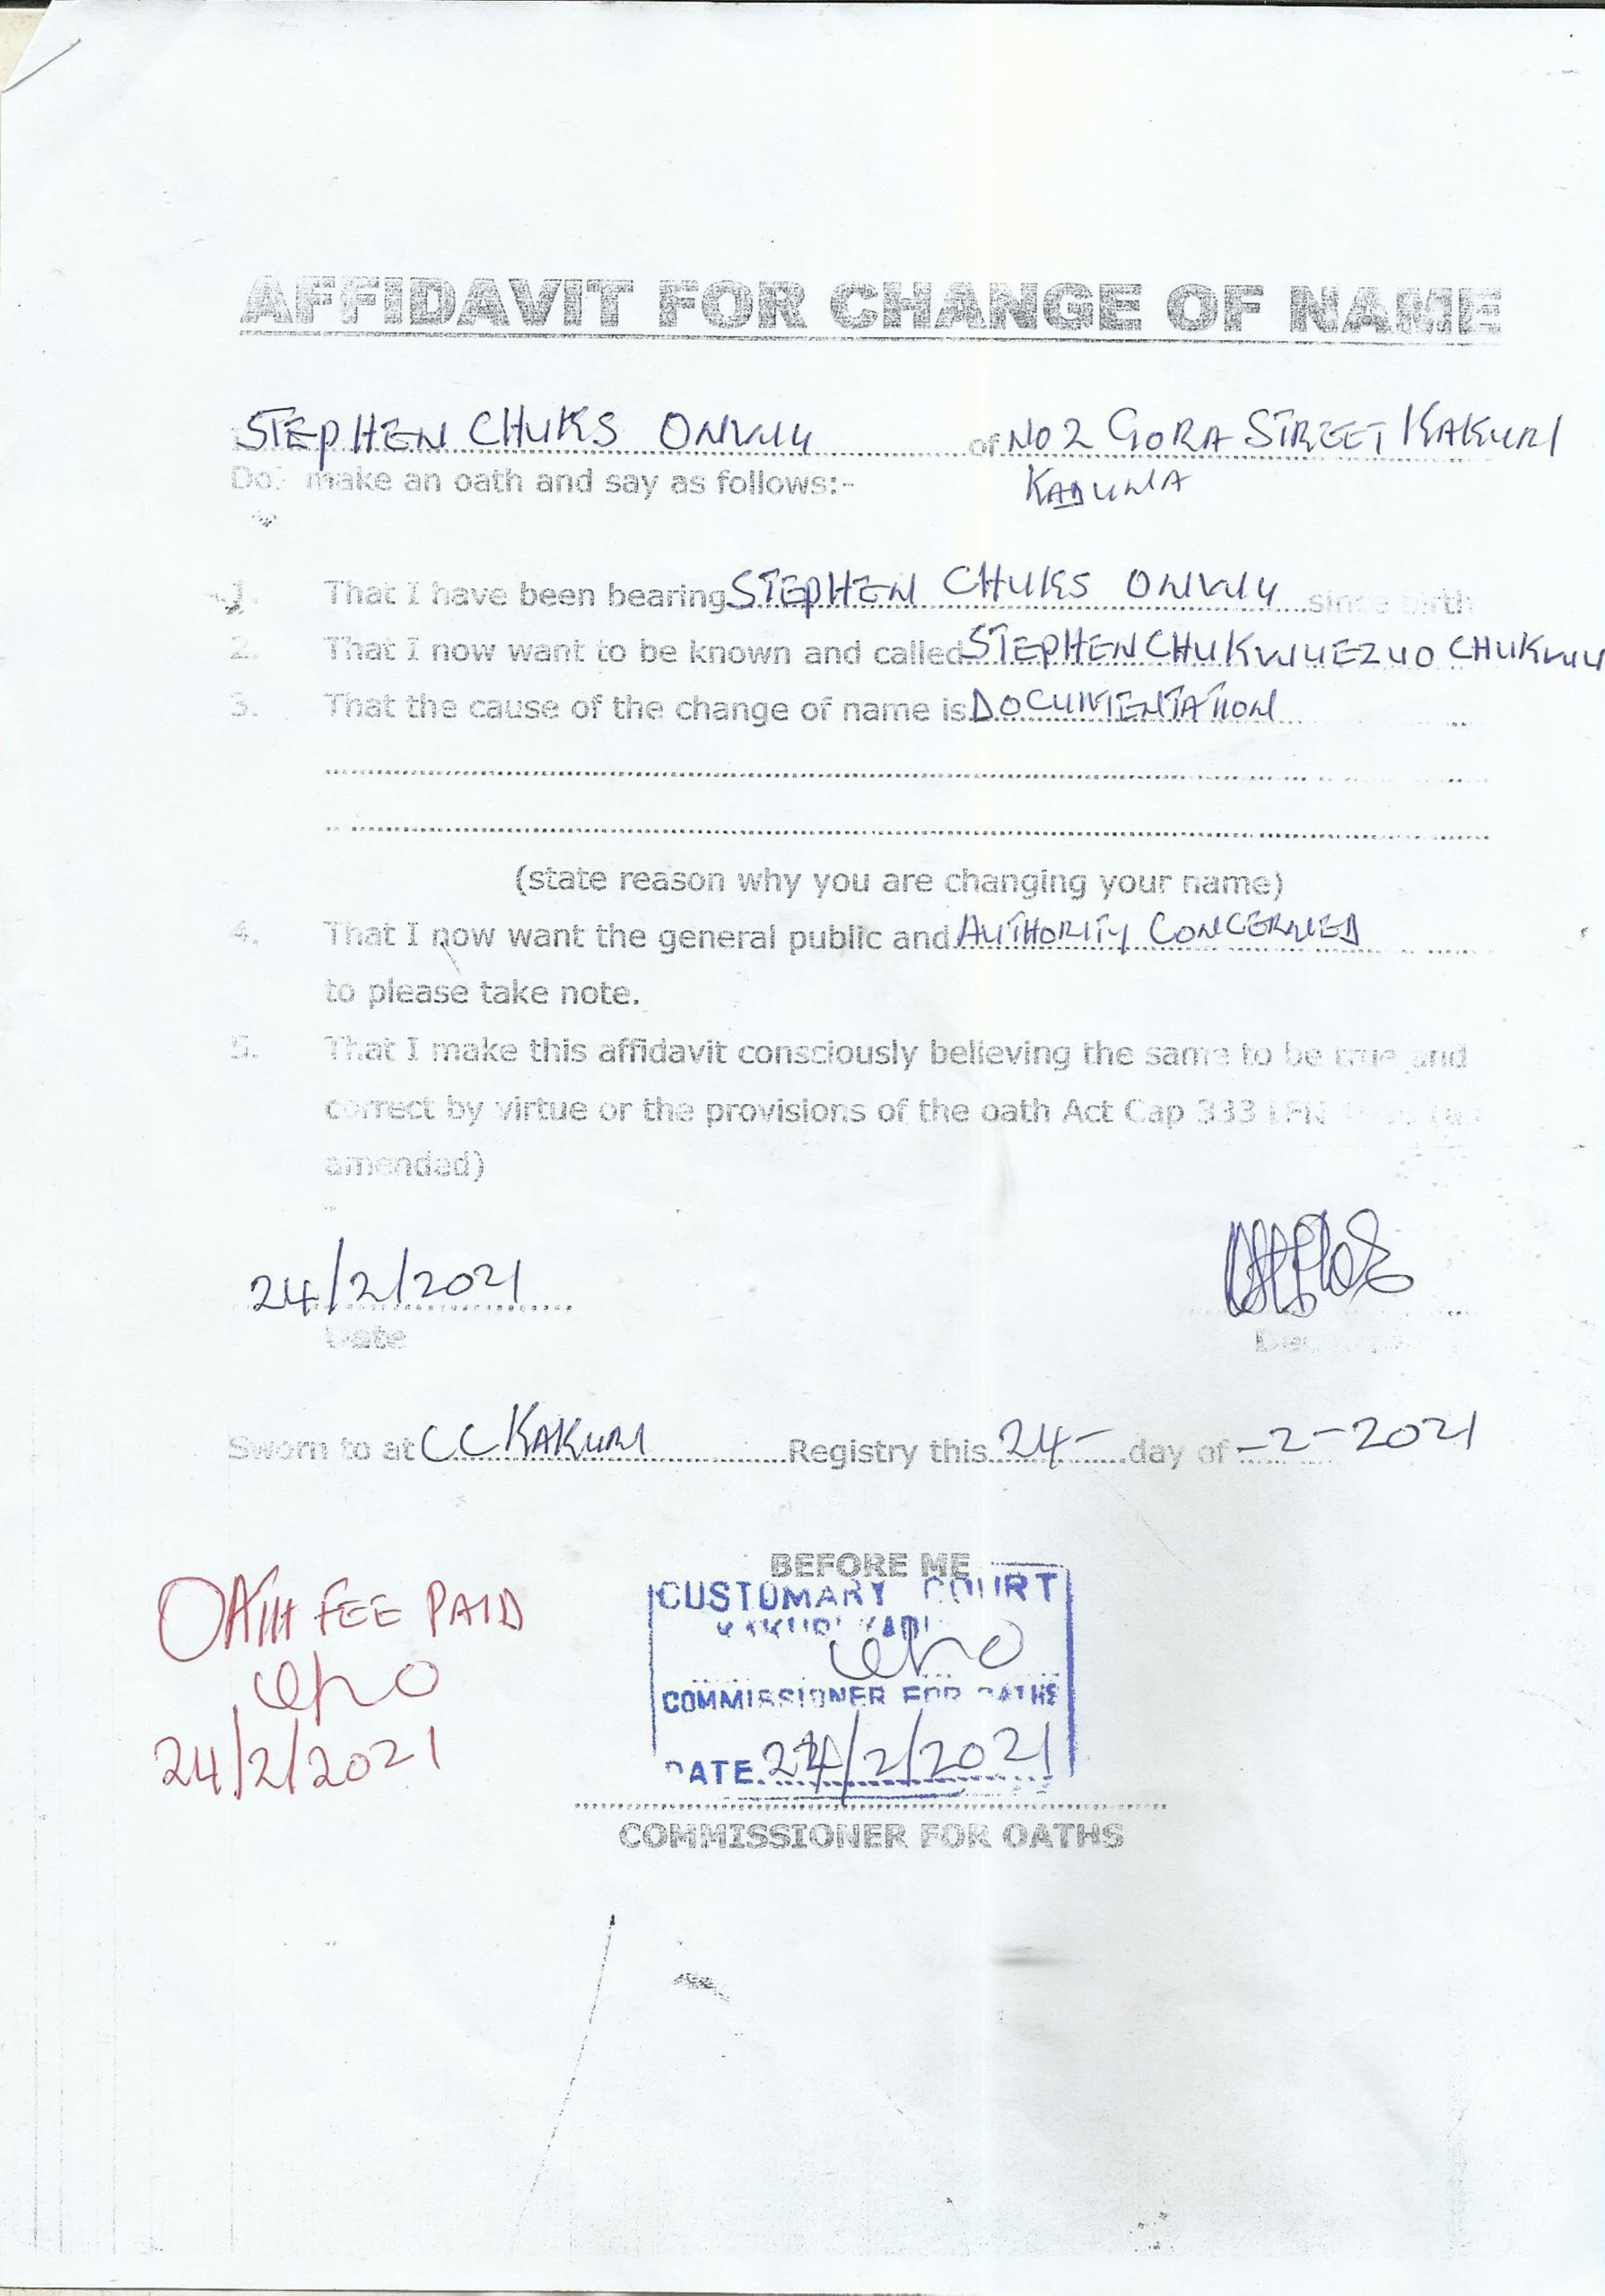 AFFIDAVIT FOR CHANGE OF NAME
STEPHEN CHUKS ONWU of NO 2 GORA STREET KAKURI
Do. make an oath and say as follows:- KADUNA
1. That I have been bearing STEPHEN CHUKS ONWU since birth
2. That I now want to be known and called STEPHEN CHUKWUEZUO CHUKWU
3. That the cause of the change of name is DOCUMENTATION
(state reason why you are changing your name)
4. That I now want the general public and AUTHORITY CONCERNED
to please take note.
5. That I make this affidavit consciously believing the same to be true and
correct by virtue or the provisions of the oath Act Cap 333 LFN
amended)
24/2/2021
Date
Sworn to at CC KAKURI Registry this 24- day of -2-2021
BEFORE ME
CUSTOMARY COURT
KAKURI
COMMISSIONER FOR OATHS
DATE 24/2/2021
OATH FEE PAID
24/2/2021
COMMISSIONER FOR OATHS